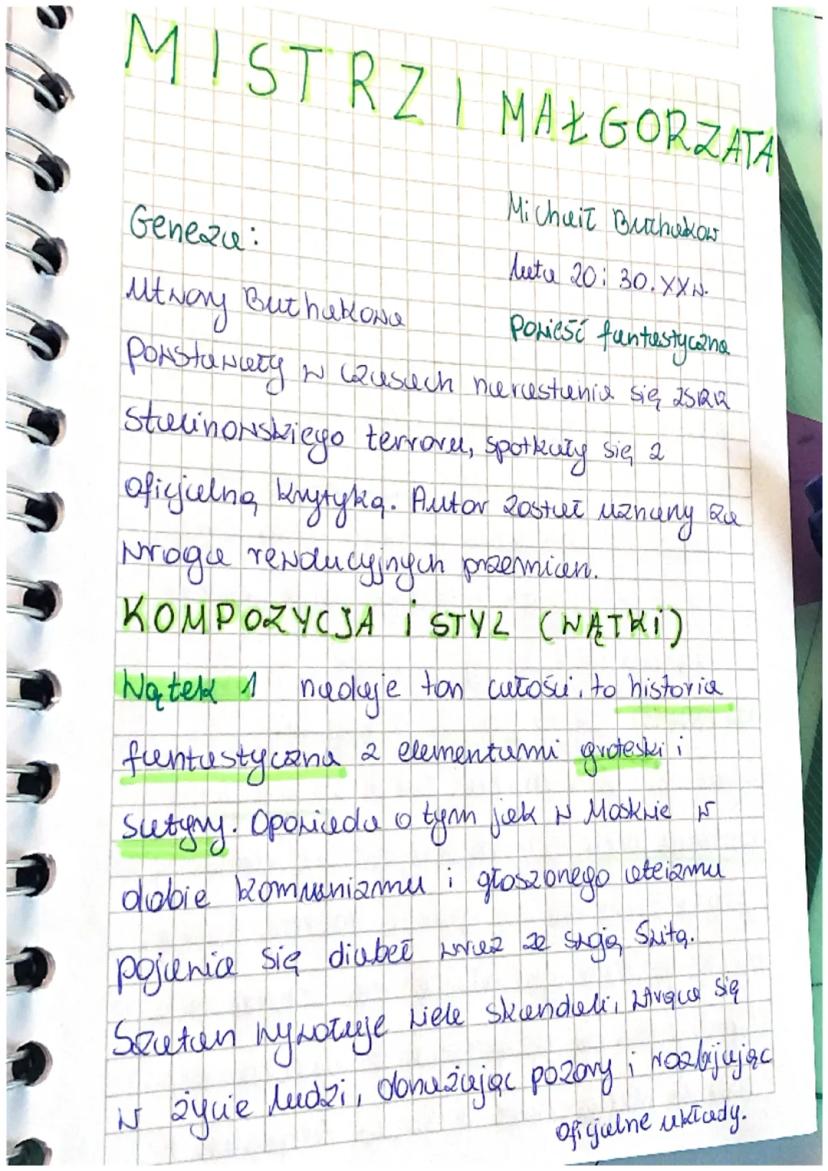 MISTRZ I MAŁGORZATA
Michaił Bułhakow
Geneza:
lata 20 i 30. XX w.
Utwory Bułhakowa
powieść fantastyczna
powstawały w czasach narastania się ZSRR
stalinowskiego terroru, spotkały się z
oficjalną krytyką. Autor został uznany za
wroga rewolucyjnych przemian.
KOMPOZYCJA i STYL (WĄTKI)
Wątek 1 nadaje ton całości, to historia
fantastyczna z elementami groteski i
satyry. Opowiada o tym jak w Moskwie w
dobie komunizmu i głoszonego ateizmu
pojawia się diabeł wraz ze swoją świtą.
Szatan wywołuje wiele skandali, wtrąca się
w życie ludzi, obnażając pozory i rozbijając
oficjalne układy.